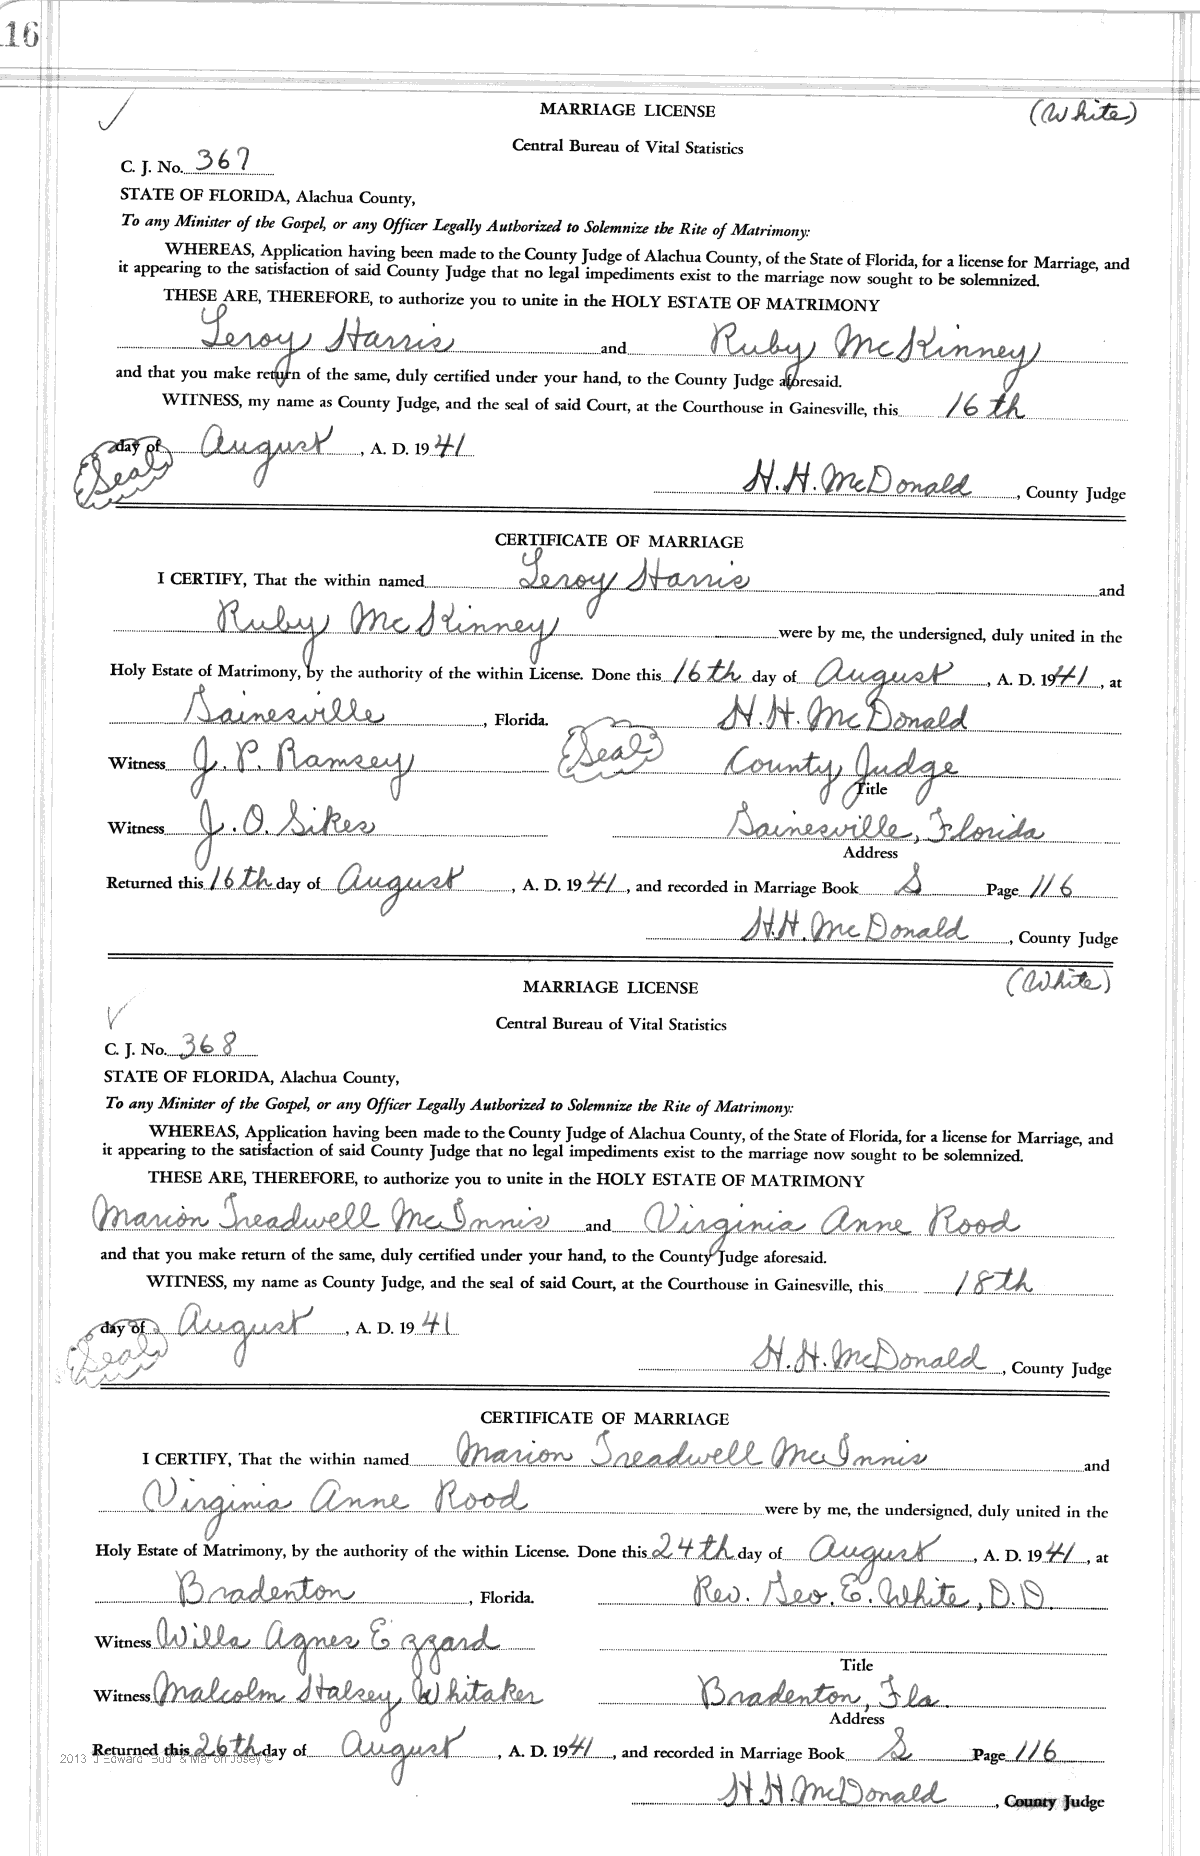 116
MARRIAGE LICENSE
(White)
Central Bureau of Vital Statistics
C. J. No. 367
STATE OF FLORIDA, Alachua County,
To any Minister of the Gospel, or any Officer Legally Authorized to Solemnize the Rite of Matrimony:
WHEREAS, Application having been made to the County Judge of Alachua County, of the State of Florida, for a license for Marriage, and
it appearing to the satisfaction of said County Judge that no legal impediments exist to the marriage now sought to be solemnized.
THESE ARE, THEREFORE, to authorize you to unite in the HOLY ESTATE OF MATRIMONY
Leroy Harris and Ruby McKinney
and that you make return of the same, duly certified under your hand, to the County Judge aforesaid.
WITNESS, my name as County Judge, and the seal of said Court, at the Courthouse in Gainesville, this 16th
day of August, A. D. 1941
(Seal)
H. H. McDonald, County Judge
CERTIFICATE OF MARRIAGE
I CERTIFY, That the within named Leroy Harris and
Ruby McKinney were by me, the undersigned, duly united in the
Holy Estate of Matrimony, by the authority of the within License. Done this 16th day of August, A. D. 1941, at
Gainesville, Florida. H. H. McDonald
Witness J. P. Ramsey (Seal) County Judge
Title
Witness J. O. Sikes Gainesville, Florida
Address
Returned this 16th day of August, A. D. 1941, and recorded in Marriage Book S Page 116
H. H. McDonald, County Judge
MARRIAGE LICENSE
(White)
Central Bureau of Vital Statistics
C. J. No. 368
STATE OF FLORIDA, Alachua County,
To any Minister of the Gospel, or any Officer Legally Authorized to Solemnize the Rite of Matrimony:
WHEREAS, Application having been made to the County Judge of Alachua County, of the State of Florida, for a license for Marriage, and
it appearing to the satisfaction of said County Judge that no legal impediments exist to the marriage now sought to be solemnized.
THESE ARE, THEREFORE, to authorize you to unite in the HOLY ESTATE OF MATRIMONY
Marion Treadwell McInnis and Virginia Anne Rood
and that you make return of the same, duly certified under your hand, to the County Judge aforesaid.
WITNESS, my name as County Judge, and the seal of said Court, at the Courthouse in Gainesville, this 18th
day of August, A. D. 1941
(Seal)
H. H. McDonald, County Judge
CERTIFICATE OF MARRIAGE
I CERTIFY, That the within named Marion Treadwell McInnis and
Virginia Anne Rood were by me, the undersigned, duly united in the
Holy Estate of Matrimony, by the authority of the within License. Done this 24th day of August, A. D. 1941, at
Bradenton, Florida. Rev. Geo. E. White, D.D.
Witness Willa Agnes Ezzard
Title
Witness Malcolm Halsey Whitaker Bradenton, Fla.
Address
Returned this 26th day of August, A. D. 1941, and recorded in Marriage Book S Page 116
2013 J Edward "Bud" & Marion Josey ©
H. H. McDonald, County Judge